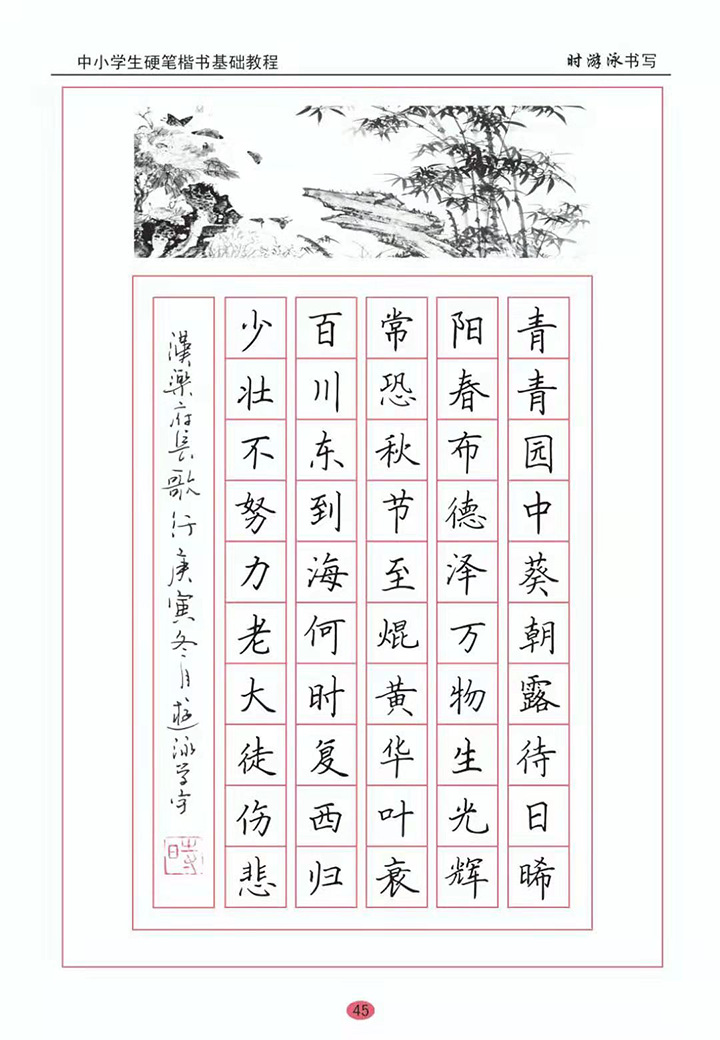 中小学生硬笔楷书基础教程
时游泳书写
青青园中葵朝露待日晞
阳春布德泽万物生光辉
常恐秋节至焜黄华叶衰
百川东到海何时复西归
少壮不努力老大徒伤悲
漢樂府長歌行庚寅冬月游泳学字
時
45